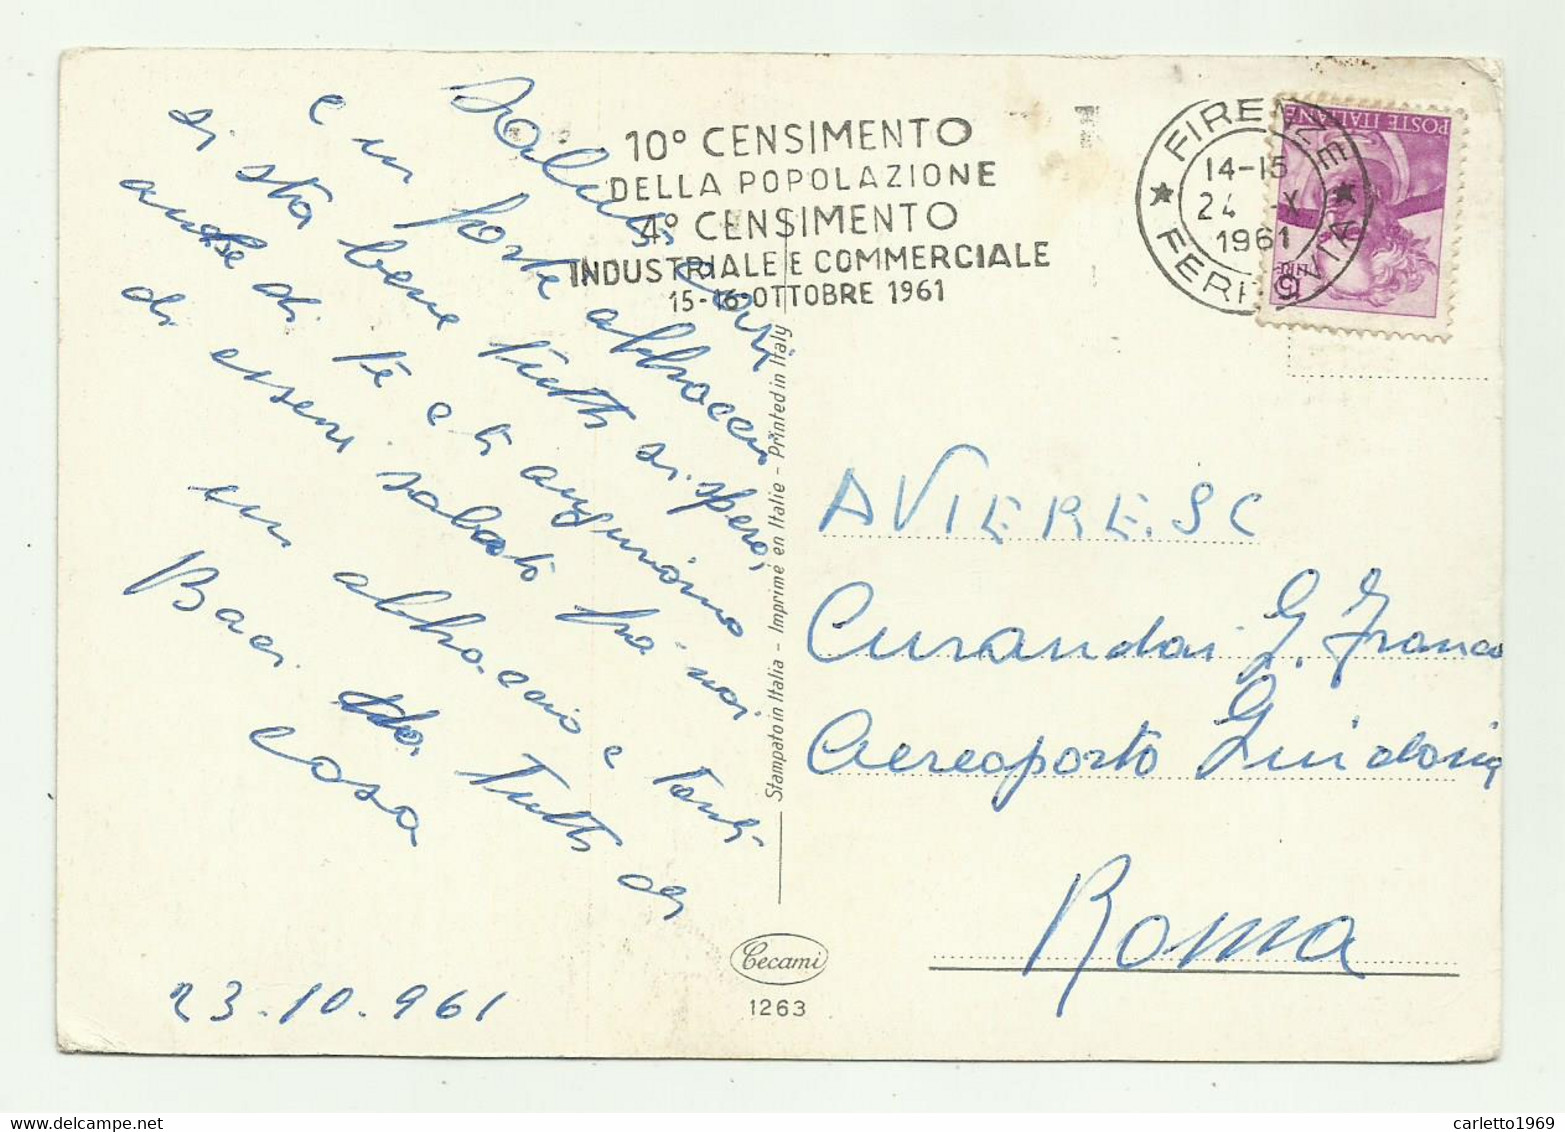 Saluti cari
e un forte abbraccio
si sta bene tutti si spera,
anche di te e ti auguriamo
di essere sabato tra noi
un abbraccio e tanti
Baci da Tutti di
casa
23.10.961
10° CENSIMENTO
DELLA POPOLAZIONE
4° CENSIMENTO
INDUSTRIALE E COMMERCIALE
15-16-OTTOBRE 1961
FIRENZE
14-15
24 X
1961
FERROVIA
POSTE ITALIANE
LIRE 15
Stampato in Italia - Imprimé en Italie - Printed in Italy
AVIERE.SC
Curandai G. Franco
Aereoporto Guidonia
Roma
Cecami
1263
carletto1969